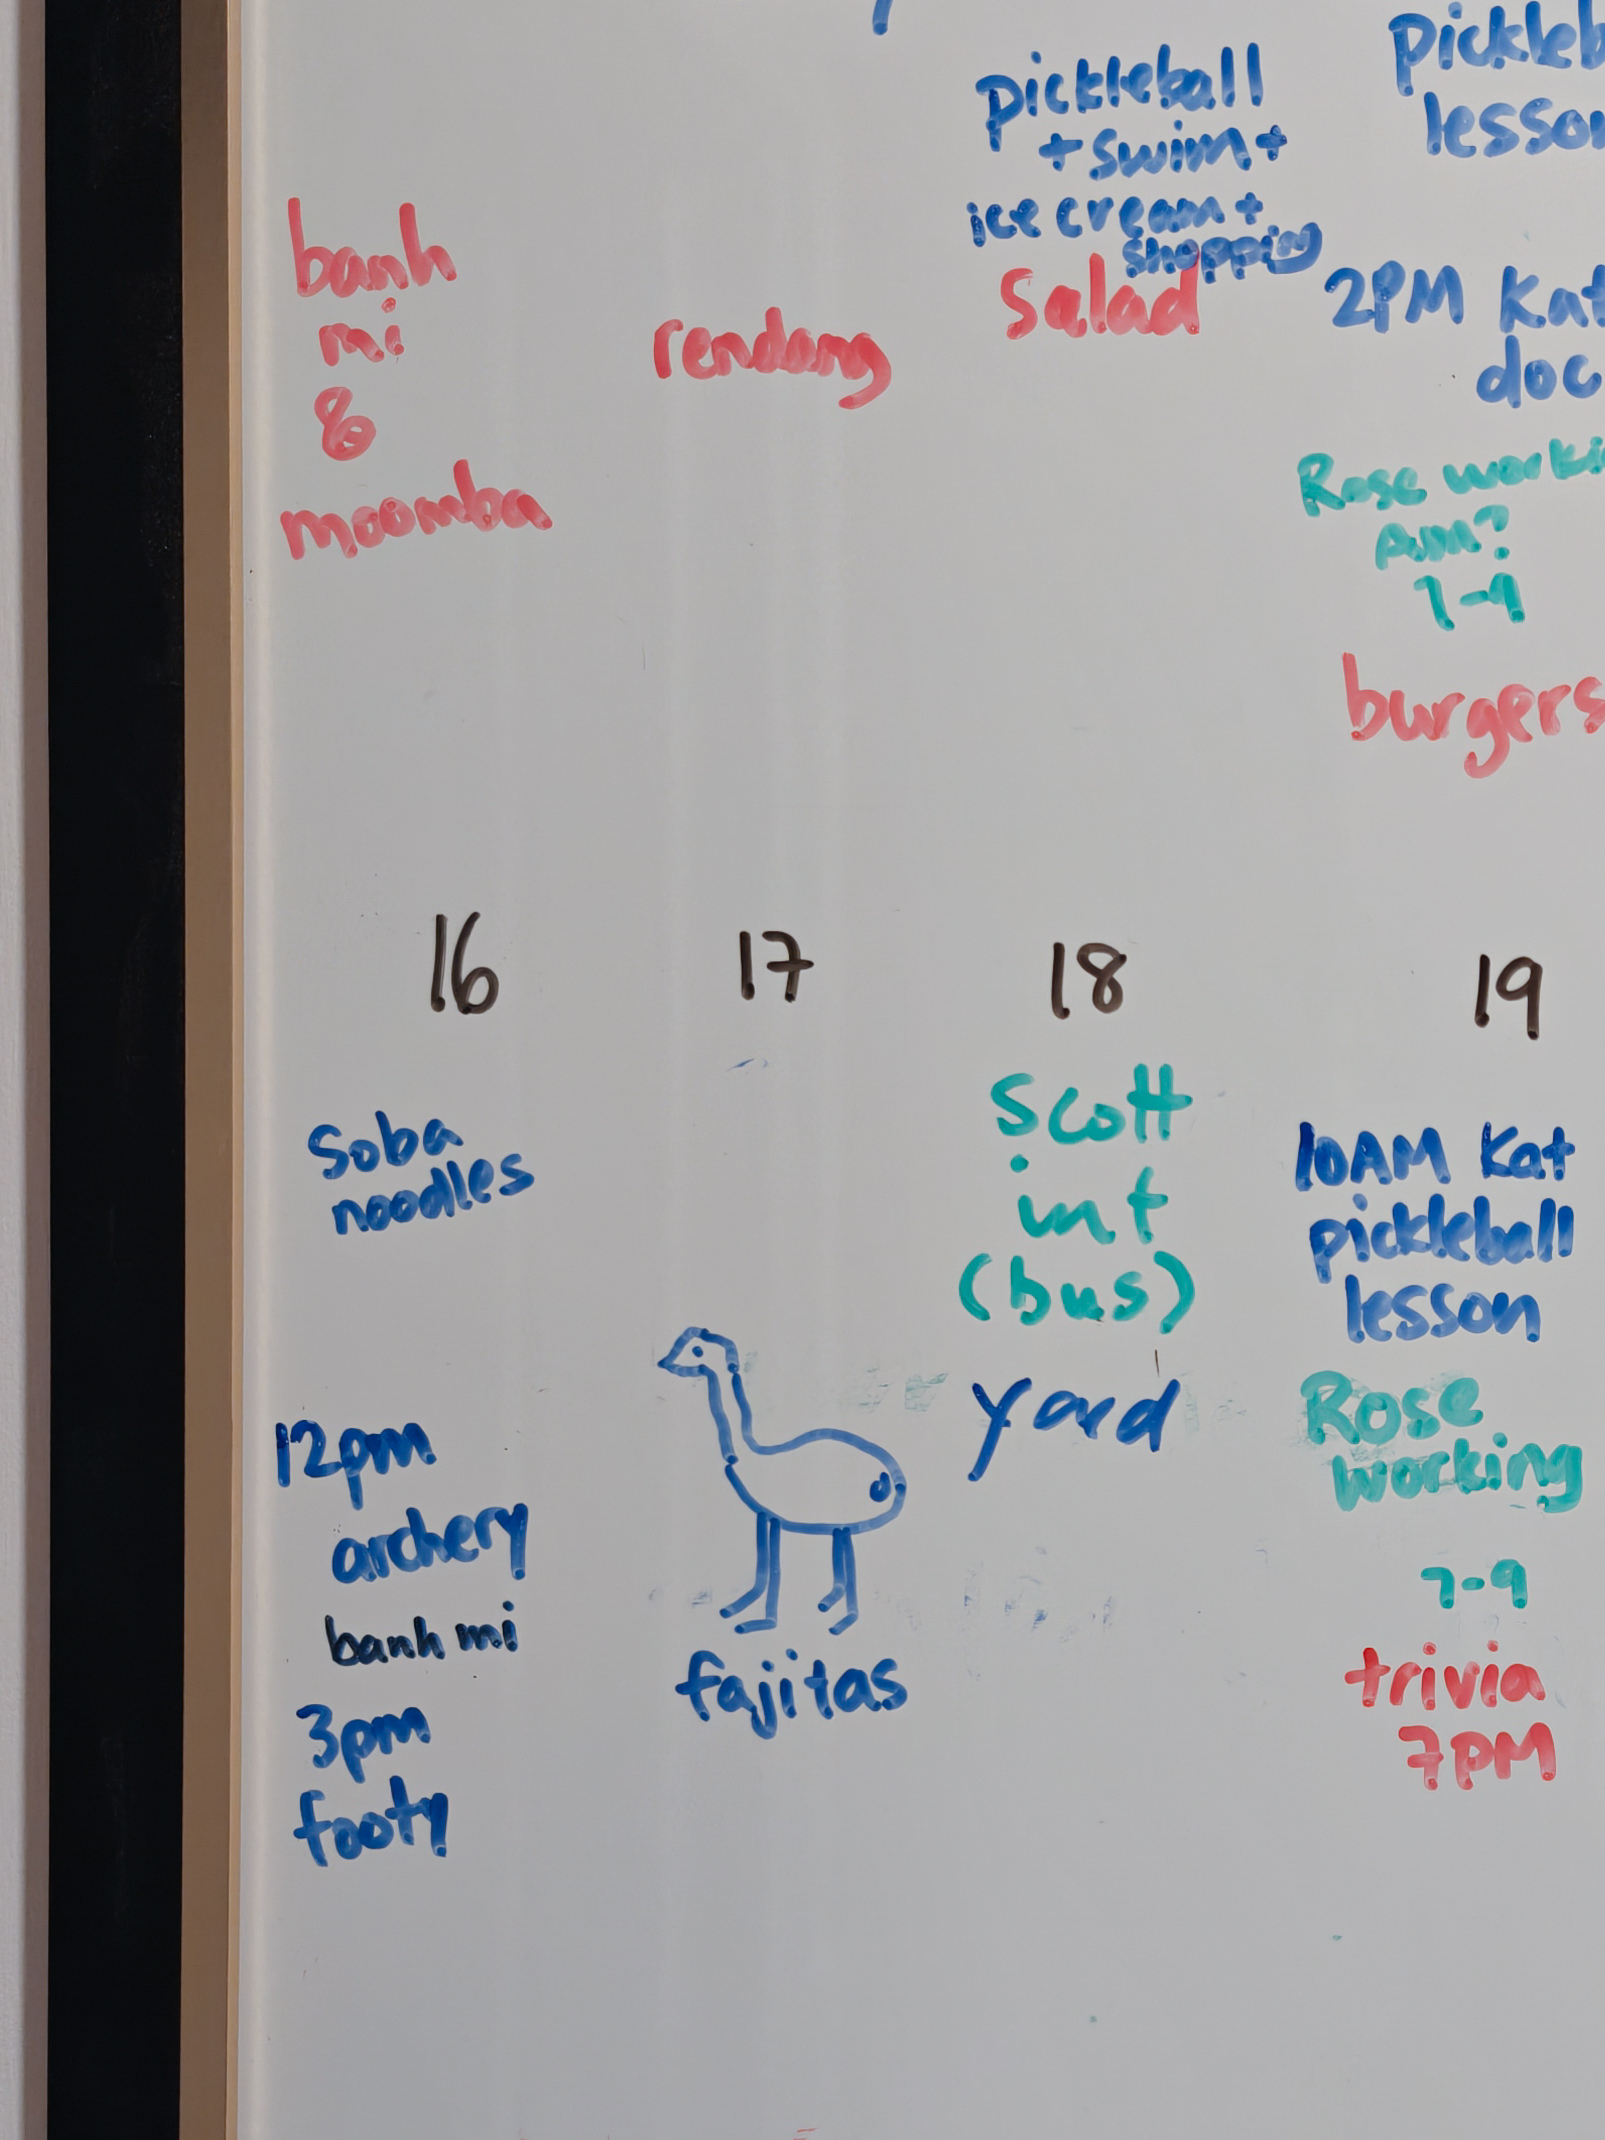 pickleball
+ swim +
ice cream +
shopping
salad
lesson
2PM Kat
doc
Rose
7-9
burgers
banh
mi
&
moomba
rendang
16
soba
noodles
12pm
archery
banh mi
3pm
footy
17
fajitas
18
Scott
int
(bus)
yard
19
10AM Kat
pickleball
lesson
Rose
working
7-9
trivia
7PM